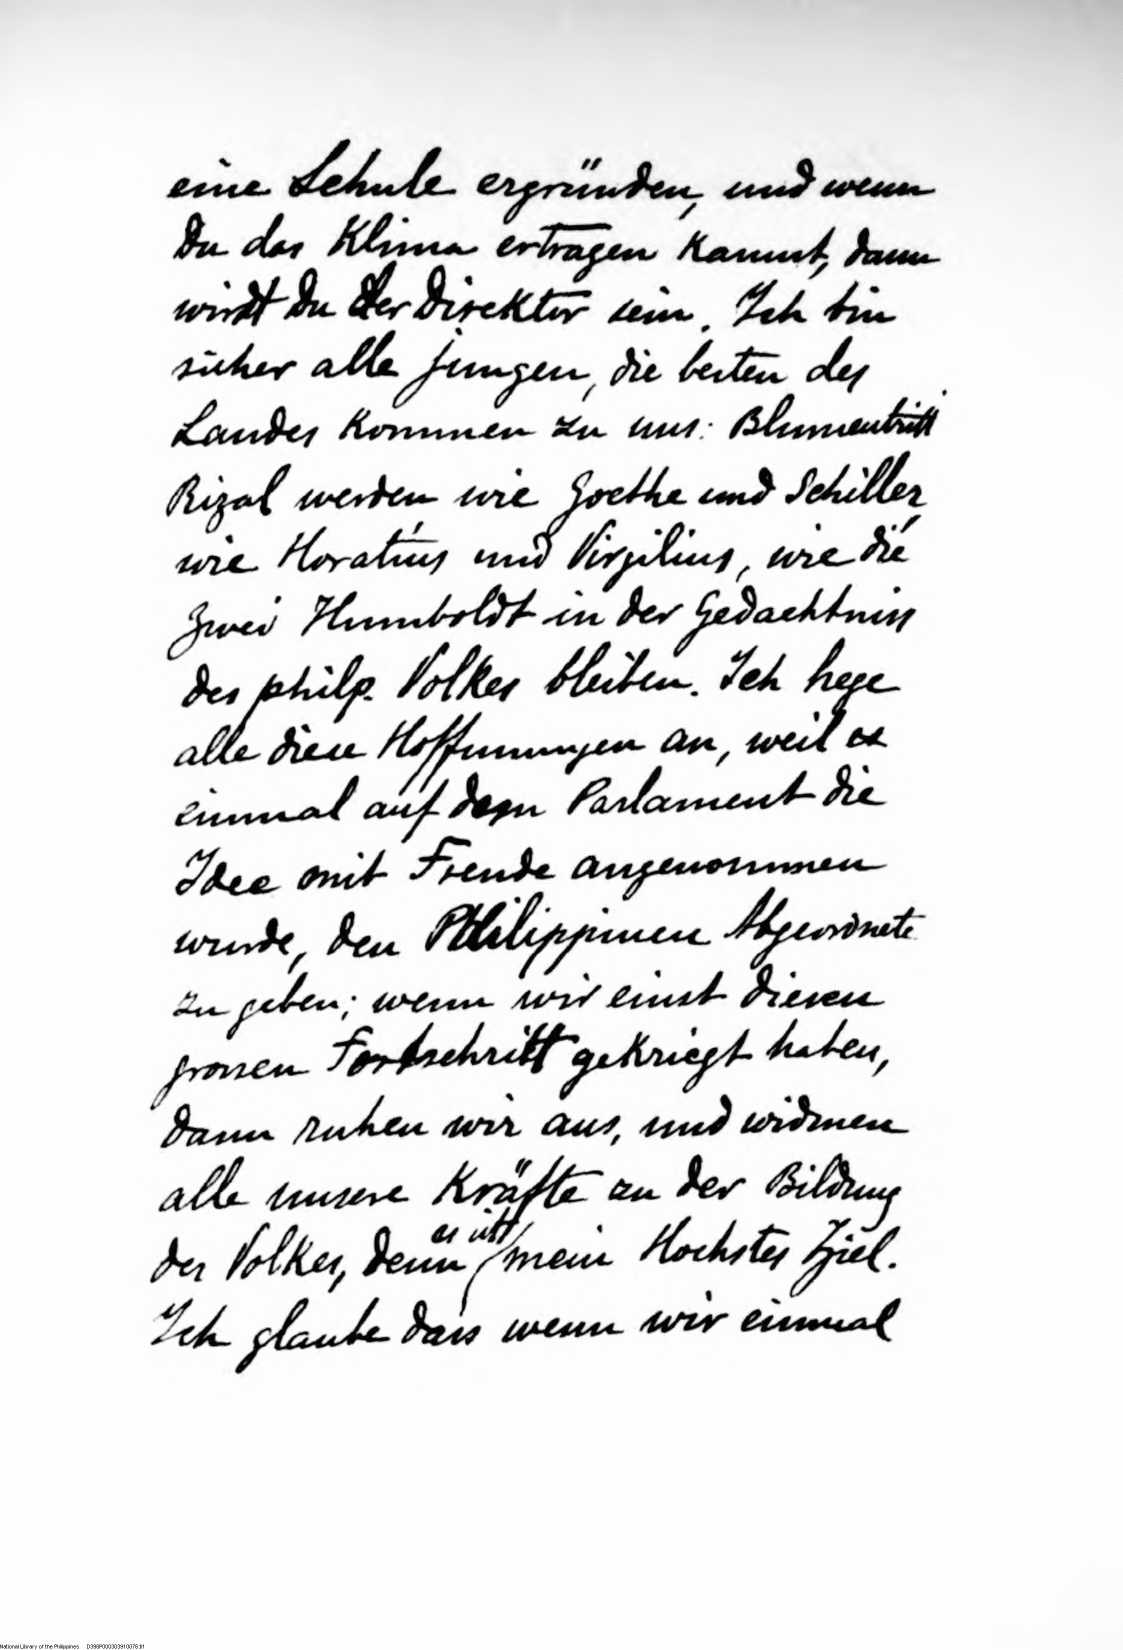 eine Schule ergründen, und wenn
Du das Klima ertragen kannst, dann
wirdt Du der Direktor sein. Ich bin
sicher alle jungen, die besten des
Landes kommen zu uns: Blumentritt
Rizal werden wie Goethe und Schiller,
wie Horatius und Virgilius, wie die
zwei Humboldt in der Gedaechtniss
des philp. Volkes bleiben. Ich hege
alle diese Hoffnungen an, weil es
einmal auf dem Parlament die
Idee mit Freude angenommen
wurde, den Philippinen Abgeordnete
zu geben; wenn wir einst diesen
grossen Fortschritt gekriegt haben,
dann ruhen wir aus, und widmen
alle unsere Kräfte zu der Bildung
des Volkes, denn es ist mein Hochstes Ziel.
Ich glaube dass wenn wir einmal
National Library of the Philippines